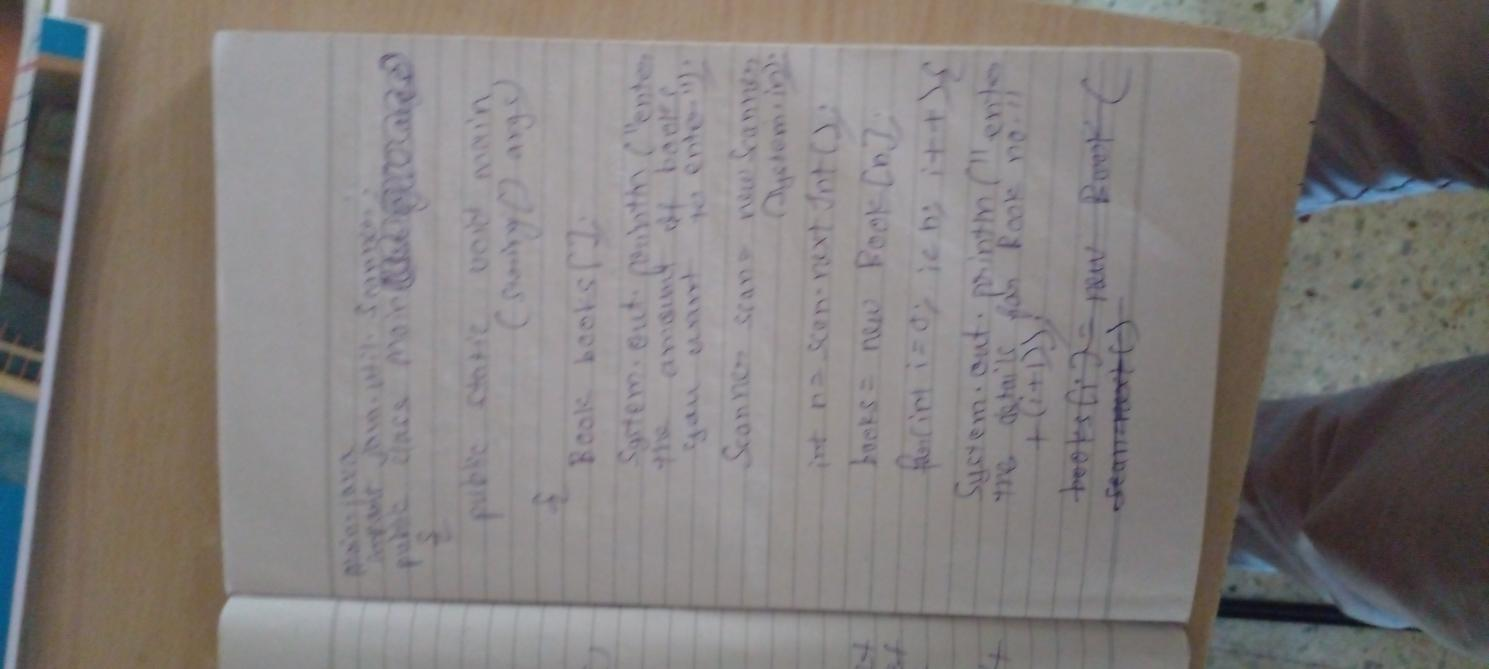 main.java
import java.util.Scanner;
public class main
{
public static void main
(string[] args)
{
Book books[];
System.out.println("enter
the amount of books
you want to enter");
Scanner scan = new Scanner
(System.in);
int n = scan.nextInt();
books = new Book[n];
for(int i=0; i<n; i++){
System.out.println("enter
the details for Book no."
+(i+1));
books[i] = new Book(
scan.next()